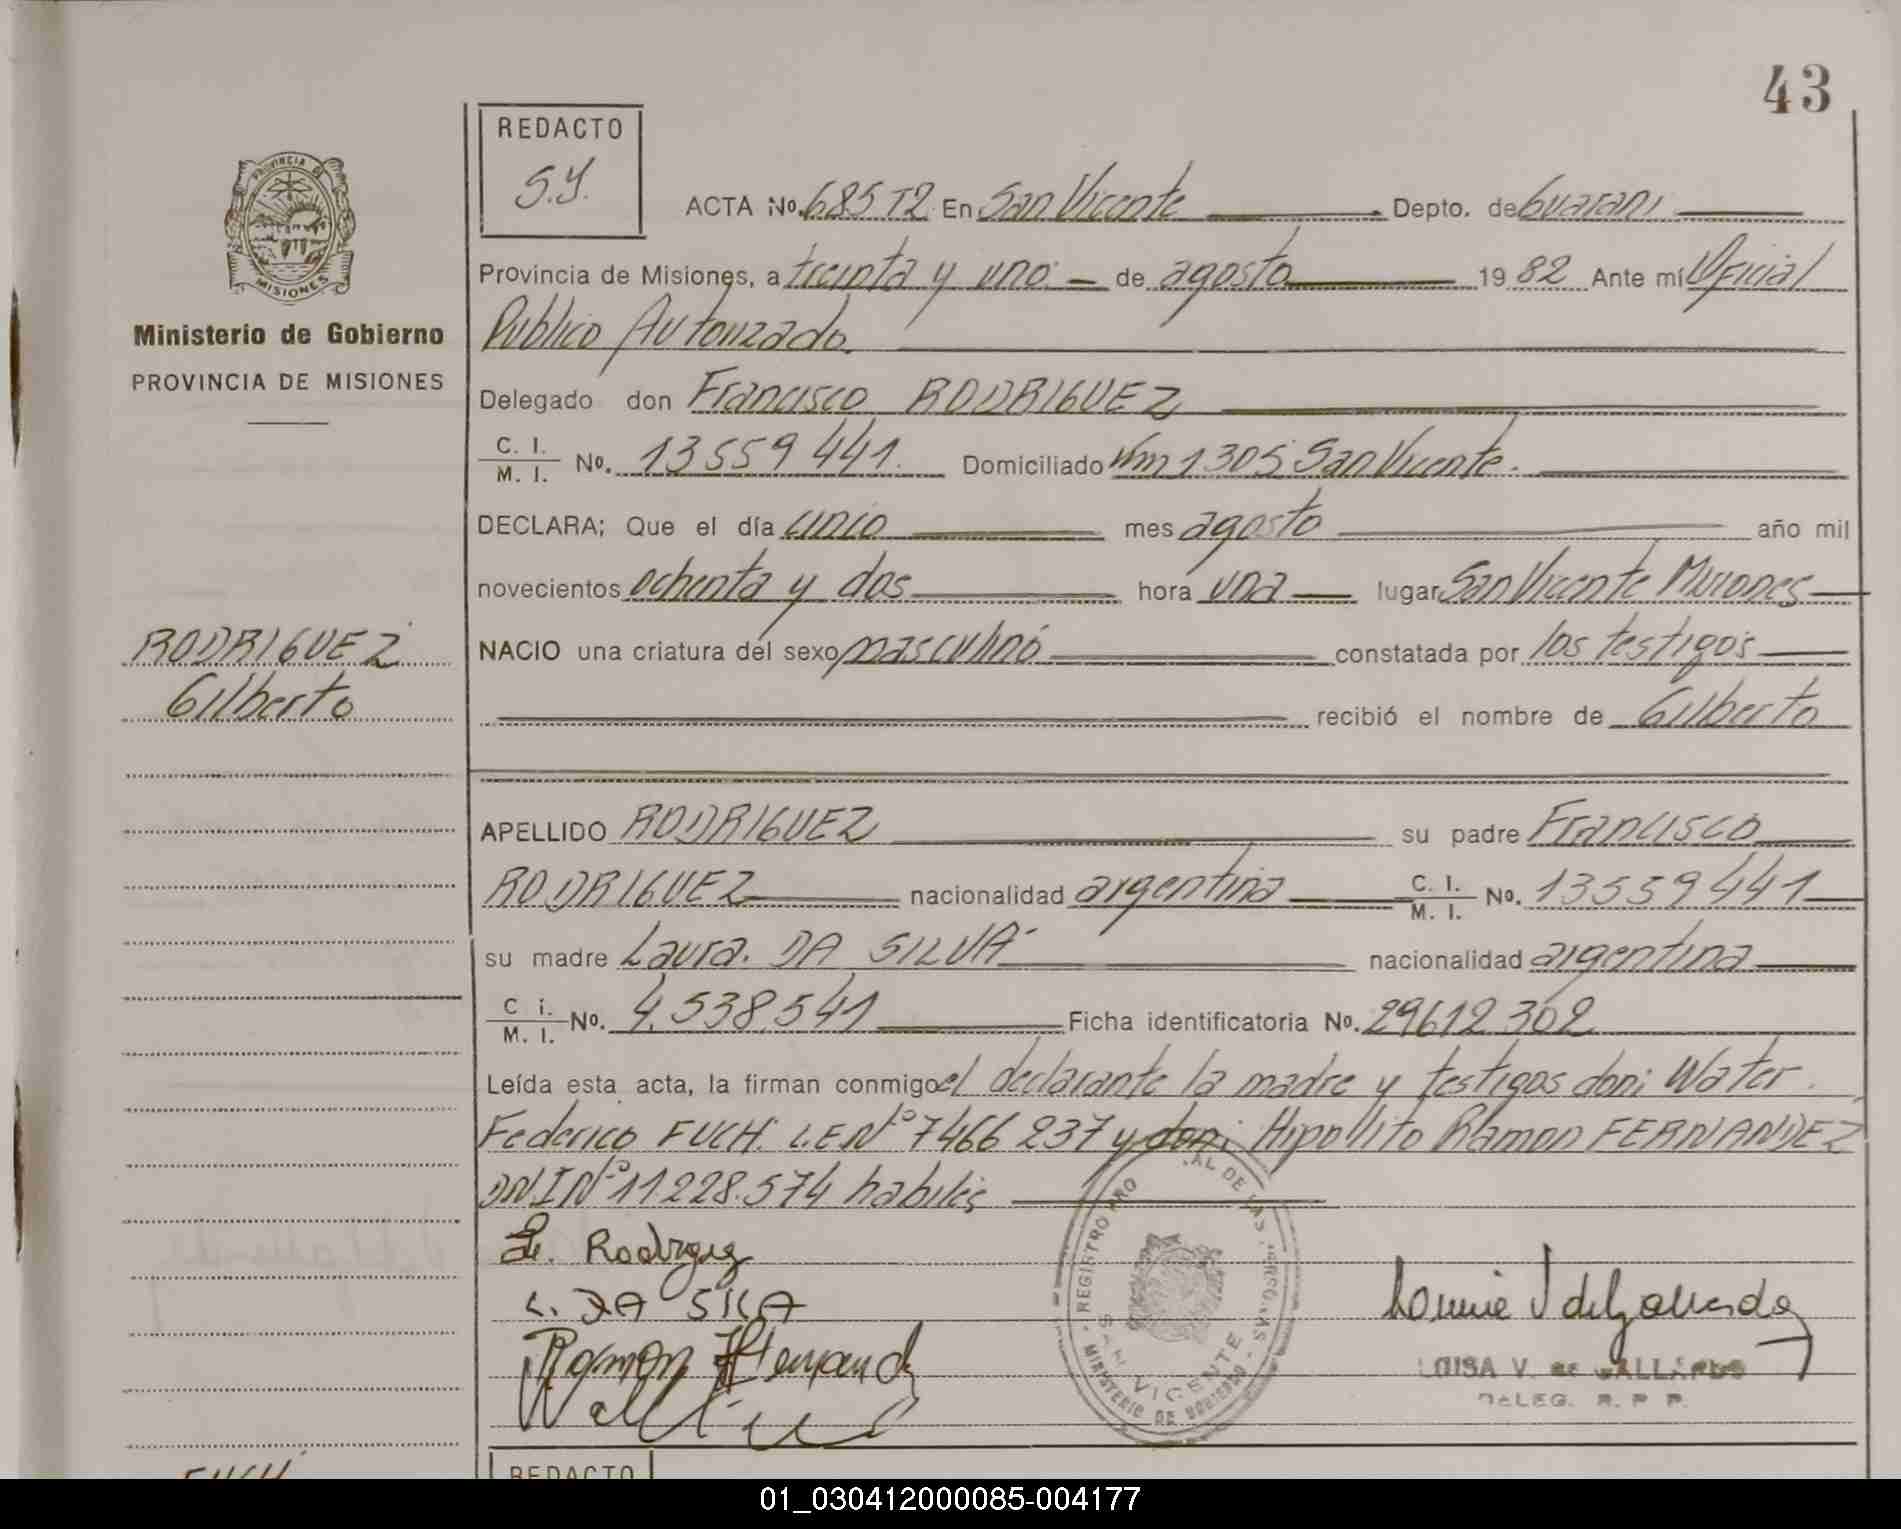 43
REDACTO
S.Y.
PROVINCIA DE
MISIONES
Ministerio de Gobierno
PROVINCIA DE MISIONES
ACTA No. 685 T2 En San Vicente Depto. de Guarani
Provincia de Misiones, a treinta y uno de agosto 1982 Ante mí Oficial
Publico Autorizado.
Delegado don Francisco RODRIGUEZ
C. I. / M. I. No. 13559441 Domiciliado Km 1305 San Vicente.
DECLARA; Que el día cinco mes agosto año mil
novecientos ochenta y dos hora una lugar San Vicente Misiones
RODRIGUEZ
Gilberto
NACIO una criatura del sexo masculino constatada por los testigos
recibió el nombre de Gilberto
APELLIDO RODRIGUEZ su padre Francisco
RODRIGUEZ nacionalidad argentina C. I. / M. I. No. 13559441
su madre Laura. DA SILVA nacionalidad argentina
C i. / M. I. No. 4.538.541 Ficha identificatoria No. 29612302
Leída esta acta, la firman conmigo el declarante la madre y testigos don: Water
Federico FUCH. L.E.Nº 7466 237 y don: Hipollito Ramon FERNANDEZ
DNI Nº 11.228.574 habiles
Rodrigez
L. DA SILA
Ramon
REGISTRO PRO AL DE LAS PERSONAS
SAN VICENTE
MINISTERIO DE GOBIERNO
LUISA V. DE GALLARDO
DELEG. R. P. P.
FUCH
REDACTO
01_030412000085-004177